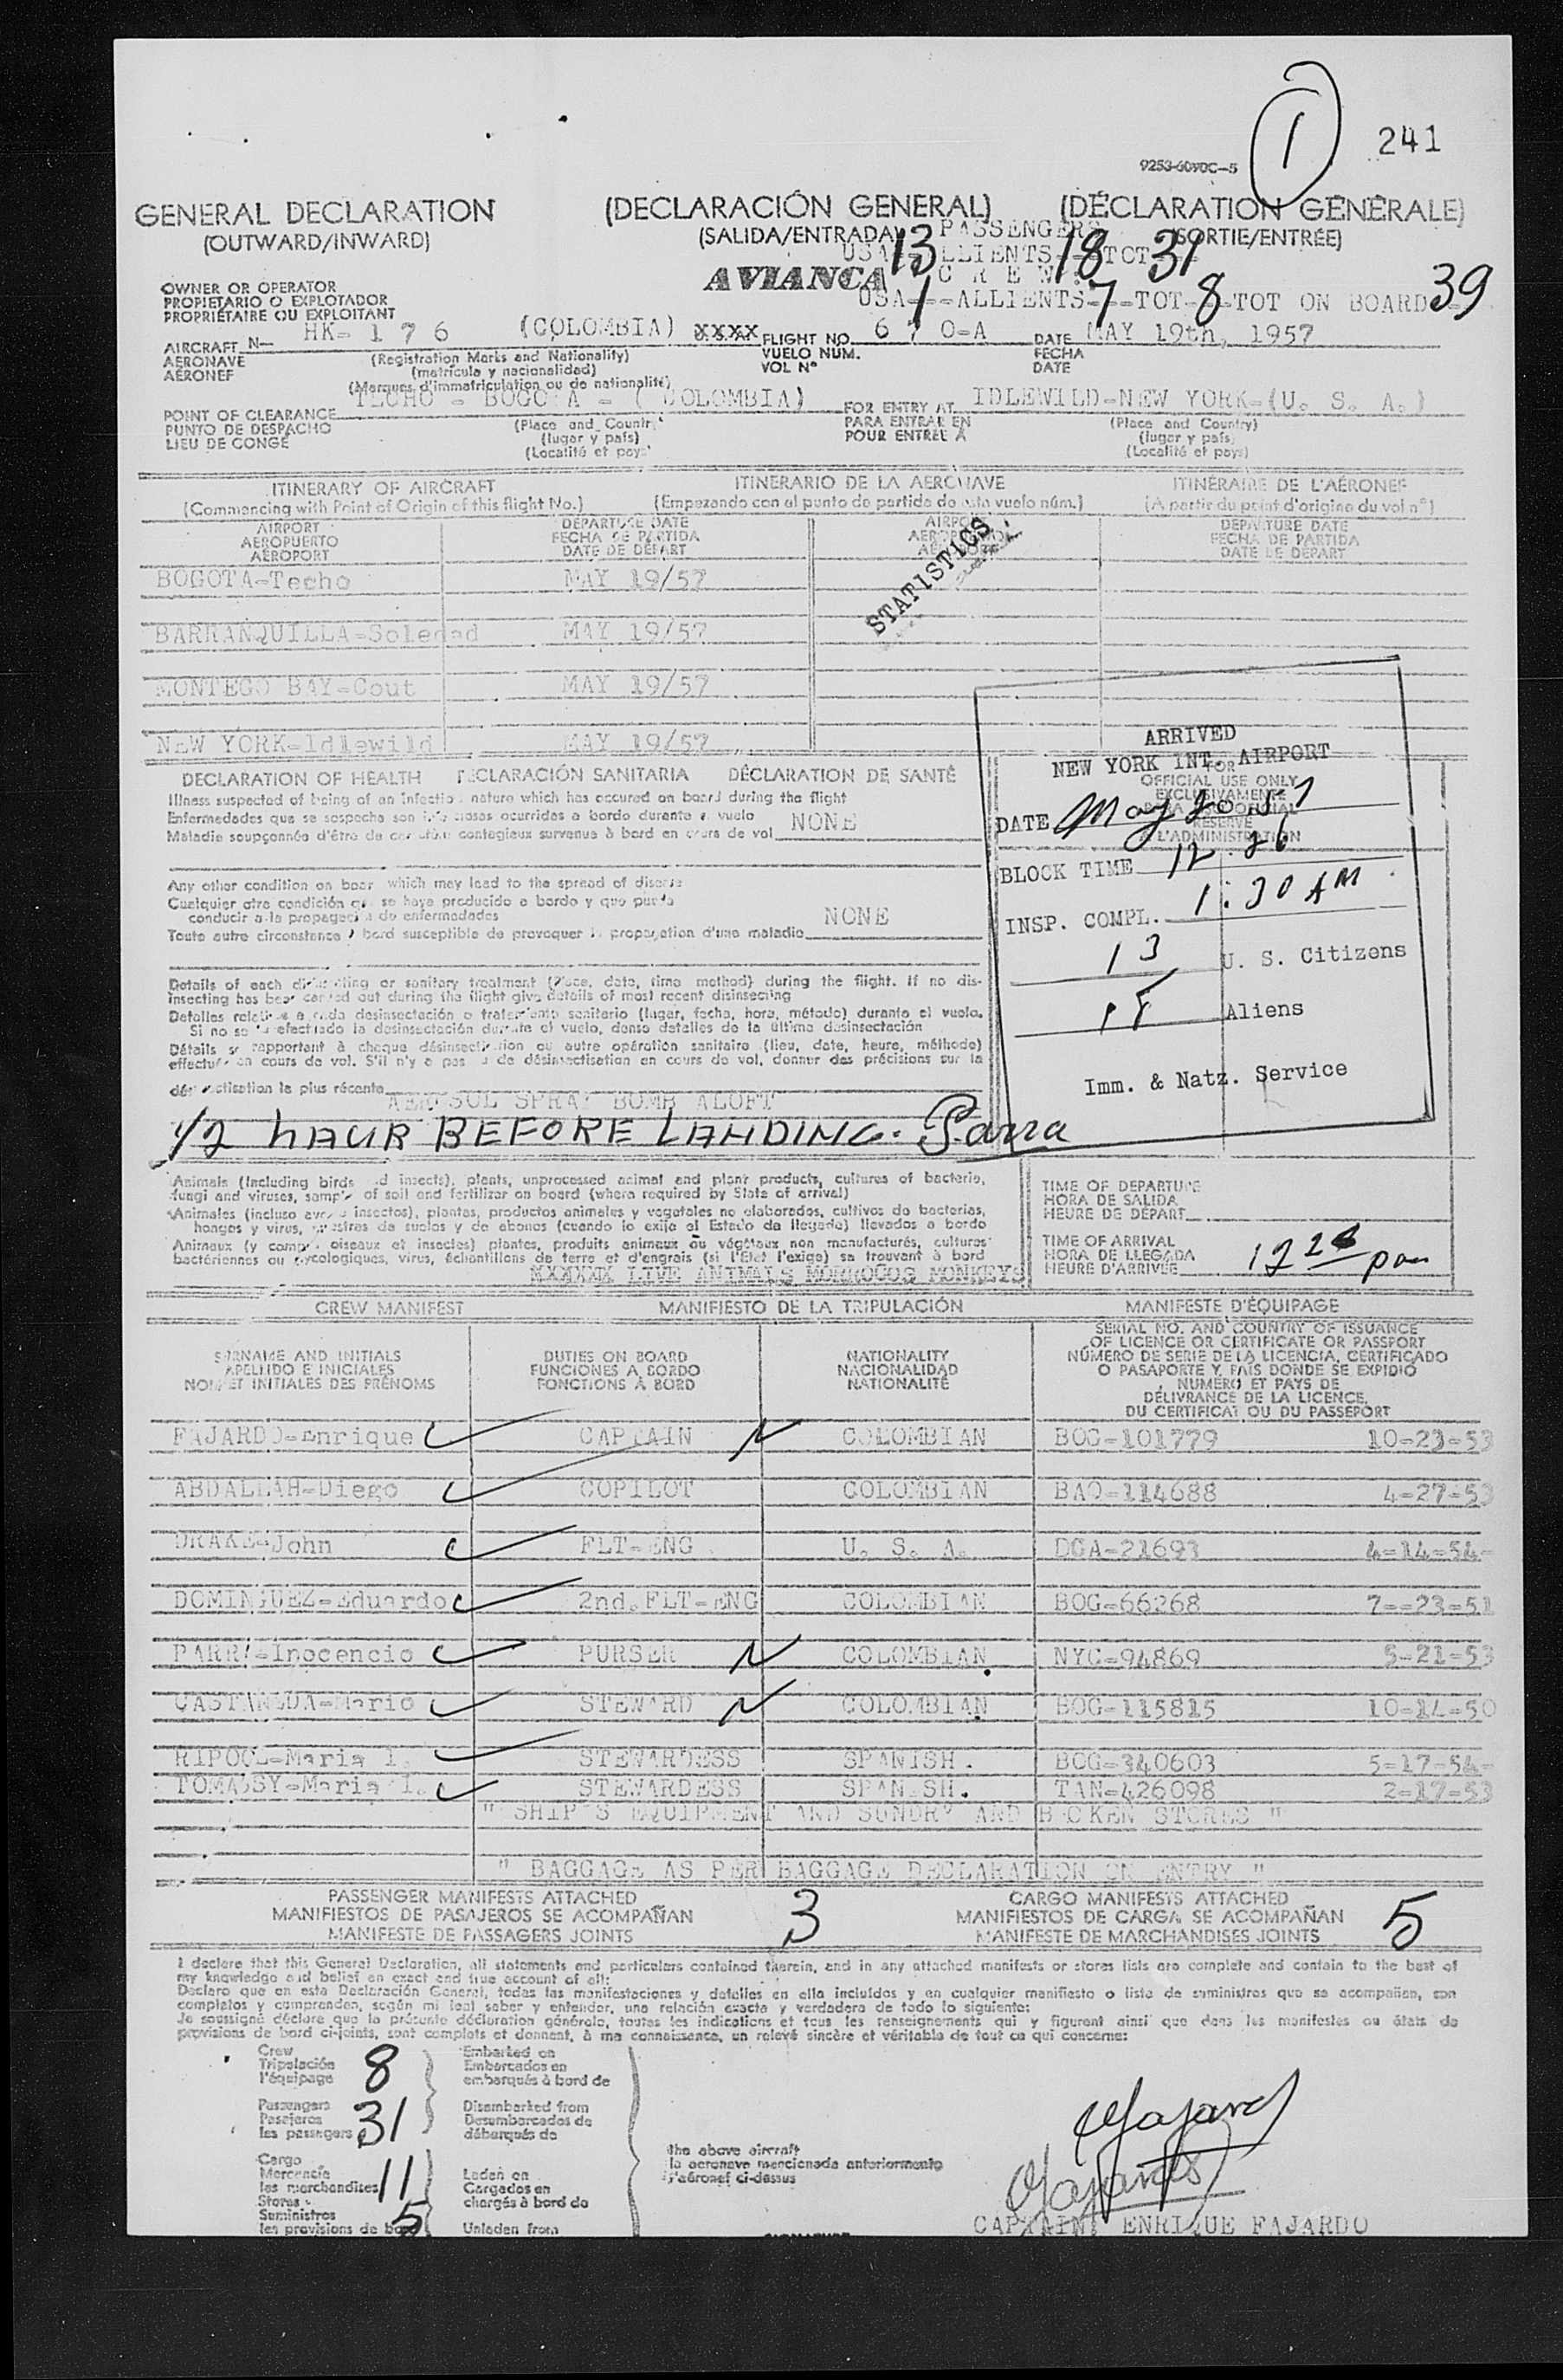 1
241
9253-6090C-5
GENERAL DECLARATION (DECLARACIÓN GENERAL) (DÉCLARATION GÉNÉRALE)
(OUTWARD/INWARD) (SALIDA/ENTRADA) (SORTIE/ENTRÉE)
PASSENGERS
USA 13 ALLIENTS 18 TOT 31
AVIANCA
C R E W
USA-1-ALLIENTS-7-TOT-8-TOT ON BOARD 39
OWNER OR OPERATOR
PROPIETARIO O EXPLOTADOR
PROPRIÉTAIRE OU EXPLOITANT
AIRCRAFT N- HK- 1 7 6 (COLOMBIA) XXXX FLIGHT NO. 6 7 0-A DATE MAY 19th, 1957
AERONAVE (Registration Marks and Nationality) VUELO NÚM. FECHA
AÉRONEF (matrícula y nacionalidad) VOL Nº DATE
(Marques d'immatriculation ou de nationalité)
POINT OF CLEARANCE TECHO - BOGOTA - (COLOMBIA) FOR ENTRY AT IDLEWILD-NEW YORK-(U. S. A.)
PUNTO DE DESPACHO (Place and Country) PARA ENTRAR EN (Place and Country)
LIEU DE CONGÉ (lugar y país) POUR ENTRÉE A (lugar y país)
(Localité et pays) (Localité et pays)
ITINERARY OF AIRCRAFT ITINERARIO DE LA AERONAVE ITINÉRAIRE DE L'AÉRONEF
(Commencing with Point of Origin of this flight No.) (Empezando con el punto de partida de este vuelo núm.) (A partir du point d'origine du vol nº)
AIRPORT DEPARTURE DATE AIRPORT DEPARTURE DATE
AEROPUERTO FECHA DE PARTIDA AEROPUERTO FECHA DE PARTIDA
AÉROPORT DATE DE DÉPART AÉROPORT DATE DE DÉPART
STATISTICS
BOGOTA-Techo MAY 19/57
BARRANQUILLA-Soledad MAY 19/57
MONTEGO BAY-Cout MAY 19/57
NEW YORK-Idlewild MAY 19/57
ARRIVED
NEW YORK INT. AIRPORT
FOR
OFFICIAL USE ONLY
EXCLUSIVAMENTE
RÉSERVÉ
A L'ADMINISTRATION
DATE May 20 57
BLOCK TIME 12:26
INSP. COMPL. 1:30 AM
13 U. S. Citizens
18 Aliens
Imm. & Natz. Service
DECLARATION OF HEALTH DECLARACIÓN SANITARIA DÉCLARATION DE SANTÉ
Illness suspected of being of an infectious nature which has occured on board during the flight
Enfermedades que se sospecha son infecciosas ocurridas a bordo durante el vuelo
Maladie soupçonnée d'être de caractère contagieux survenue à bord en cours de vol NONE
Any other condition on board which may lead to the spread of disease
Cualquier otra condición que se haya producido a bordo y que pueda
conducir a la propagación de enfermedades
Toute autre circonstance à bord susceptible de provoquer la propagation d'une maladie NONE
Details of each disinsecting or sanitary treatment (Place, date, time method) during the flight. If no dis-
insecting has been carried out during the flight give details of most recent disinsecting
Detalles relativos a cada desinsectación o tratamiento sanitario (lugar, fecha, hora, método) durante el vuelo.
Si no se ha efectuado la desinsectación durante el vuelo, dense detalles de la última desinsectación
Détails se rapportant à chaque désinsectisation ou autre opération sanitaire (lieu, date, heure, méthode)
effectuée en cours de vol. S'il n'y a pas eu de désinsectisation en cours de vol, donner des précisions sur la
désinsectisation la plus récente
AEROSOL SPRAY BOMB ALOFT
1/2 HAUR BEFORE LANDING. Parra
Animals (Including birds and insects), plants, unprocessed animal and plant products, cultures of bacteria,
fungi and viruses, samples of soil and fertilizer on board (where required by State of arrival)
Animales (incluso aves e insectos), plantas, productos animales y vegetales no elaborados, cultivos de bacterias,
hongos y virus, muestras de suelos y de abonos (cuando lo exija el Estado de llegada) llevados a bordo
Animaux (y compris oiseaux et insectes) plantes, produits animaux ou végétaux non manufacturés, cultures
bactériennes ou mycologiques, virus, échantillons de terre et d'engrais (si l'État l'exige) se trouvant à bord
XXXXXX LIVE ANIMALS MORROCOS MONKEYS
TIME OF DEPARTURE
HORA DE SALIDA
HEURE DE DÉPART
TIME OF ARRIVAL
HORA DE LLEGADA
HEURE D'ARRIVÉE 12 26 pm
CREW MANIFEST MANIFIESTO DE LA TRIPULACIÓN MANIFESTE D'ÉQUIPAGE
SURNAME AND INITIALS DUTIES ON BOARD NATIONALITY SERIAL NO. AND COUNTRY OF ISSUANCE
APELLIDO E INICIALES FUNCIONES A BORDO NACIONALIDAD OF LICENCE OR CERTIFICATE OR PASSPORT
NOM ET INITIALES DES PRÉNOMS FONCTIONS À BORD NATIONALITÉ NÚMERO DE SERIE DE LA LICENCIA, CERTIFICADO
O PASAPORTE Y PAÍS DONDE SE EXPIDIÓ
NUMÉRO ET PAYS DE
DÉLIVRANCE DE LA LICENCE,
DU CERTIFICAT OU DU PASSEPORT
FAJARDO-Enrique CAPTAIN COLOMBIAN BOG-101779 10-23-53
ABDALLAH-Diego COPILOT COLOMBIAN BAQ-114688 4-27-53
DRAKE-John FLT-ENG U. S. A. DCA-21693 4-14-54-
DOMINGUEZ-Eduardo 2nd.FLT-ENG COLOMBIAN BOG-66268 7--23-51
PARRA-Inocencio PURSER COLOMBIAN NYC-94869 5-21-53
CASTANEDA-Mario STEWARD COLOMBIAN BOG-115815 10-14-50
RIPOOL-Maria I. STEWARDESS SPANISH. BOG-340603 5-17-54-
TOMASSY-Maria I. STEWARDESS SPANISH. TAN-426098 2-17-53
" SHIP'S EQUIPMENT AND SUNDRY AND BROKEN STORES "
" BAGGAGE AS PER BAGGAGE DECLARATION ON ENTRY "
PASSENGER MANIFESTS ATTACHED CARGO MANIFESTS ATTACHED
MANIFIESTOS DE PASAJEROS SE ACOMPAÑAN 3 MANIFIESTOS DE CARGA SE ACOMPAÑAN 5
MANIFESTE DE PASSAGERS JOINTS MANIFESTE DE MARCHANDISES JOINTS
I declare that this General Declaration, all statements and particulars contained therein, and in any attached manifests or stores lists are complete and contain to the best of
my knowledge and belief an exact and true account of all:
Declaro que en esta Declaración General, todas las manifestaciones y detalles en ella incluídos y en cualquier manifiesto o lista de suministros que se acompañen, son
completos y comprenden, según mi leal saber y entender, una relación exacta y verdadera de todo lo siguiente:
Je soussigné déclare que la présente déclaration générale, toutes les indications et tous les renseignements qui y figurent ainsi que dans les manifestes ou états de
provisions de bord ci-joints, sont complets et donnent, à ma connaissance, un relevé sincère et véritable de tout ce qui concerne:
Crew Embarked on
Tripulación 8 Embarcados en
l'équipage embarqués à bord de
Passengers Disembarked from
Pasajeros 31 Desembarcados de
les passagers débarqués de
the above aircraft
la aeronave mencionada anteriormente
l'aéronef ci-dessus
Cargo
Mercancía 11 Laden on
les marchandises Cargados en
Stores chargés à bord de
Suministros 5
les provisions de bord Unladen from
CAPTAIN ENRIQUE FAJARDO